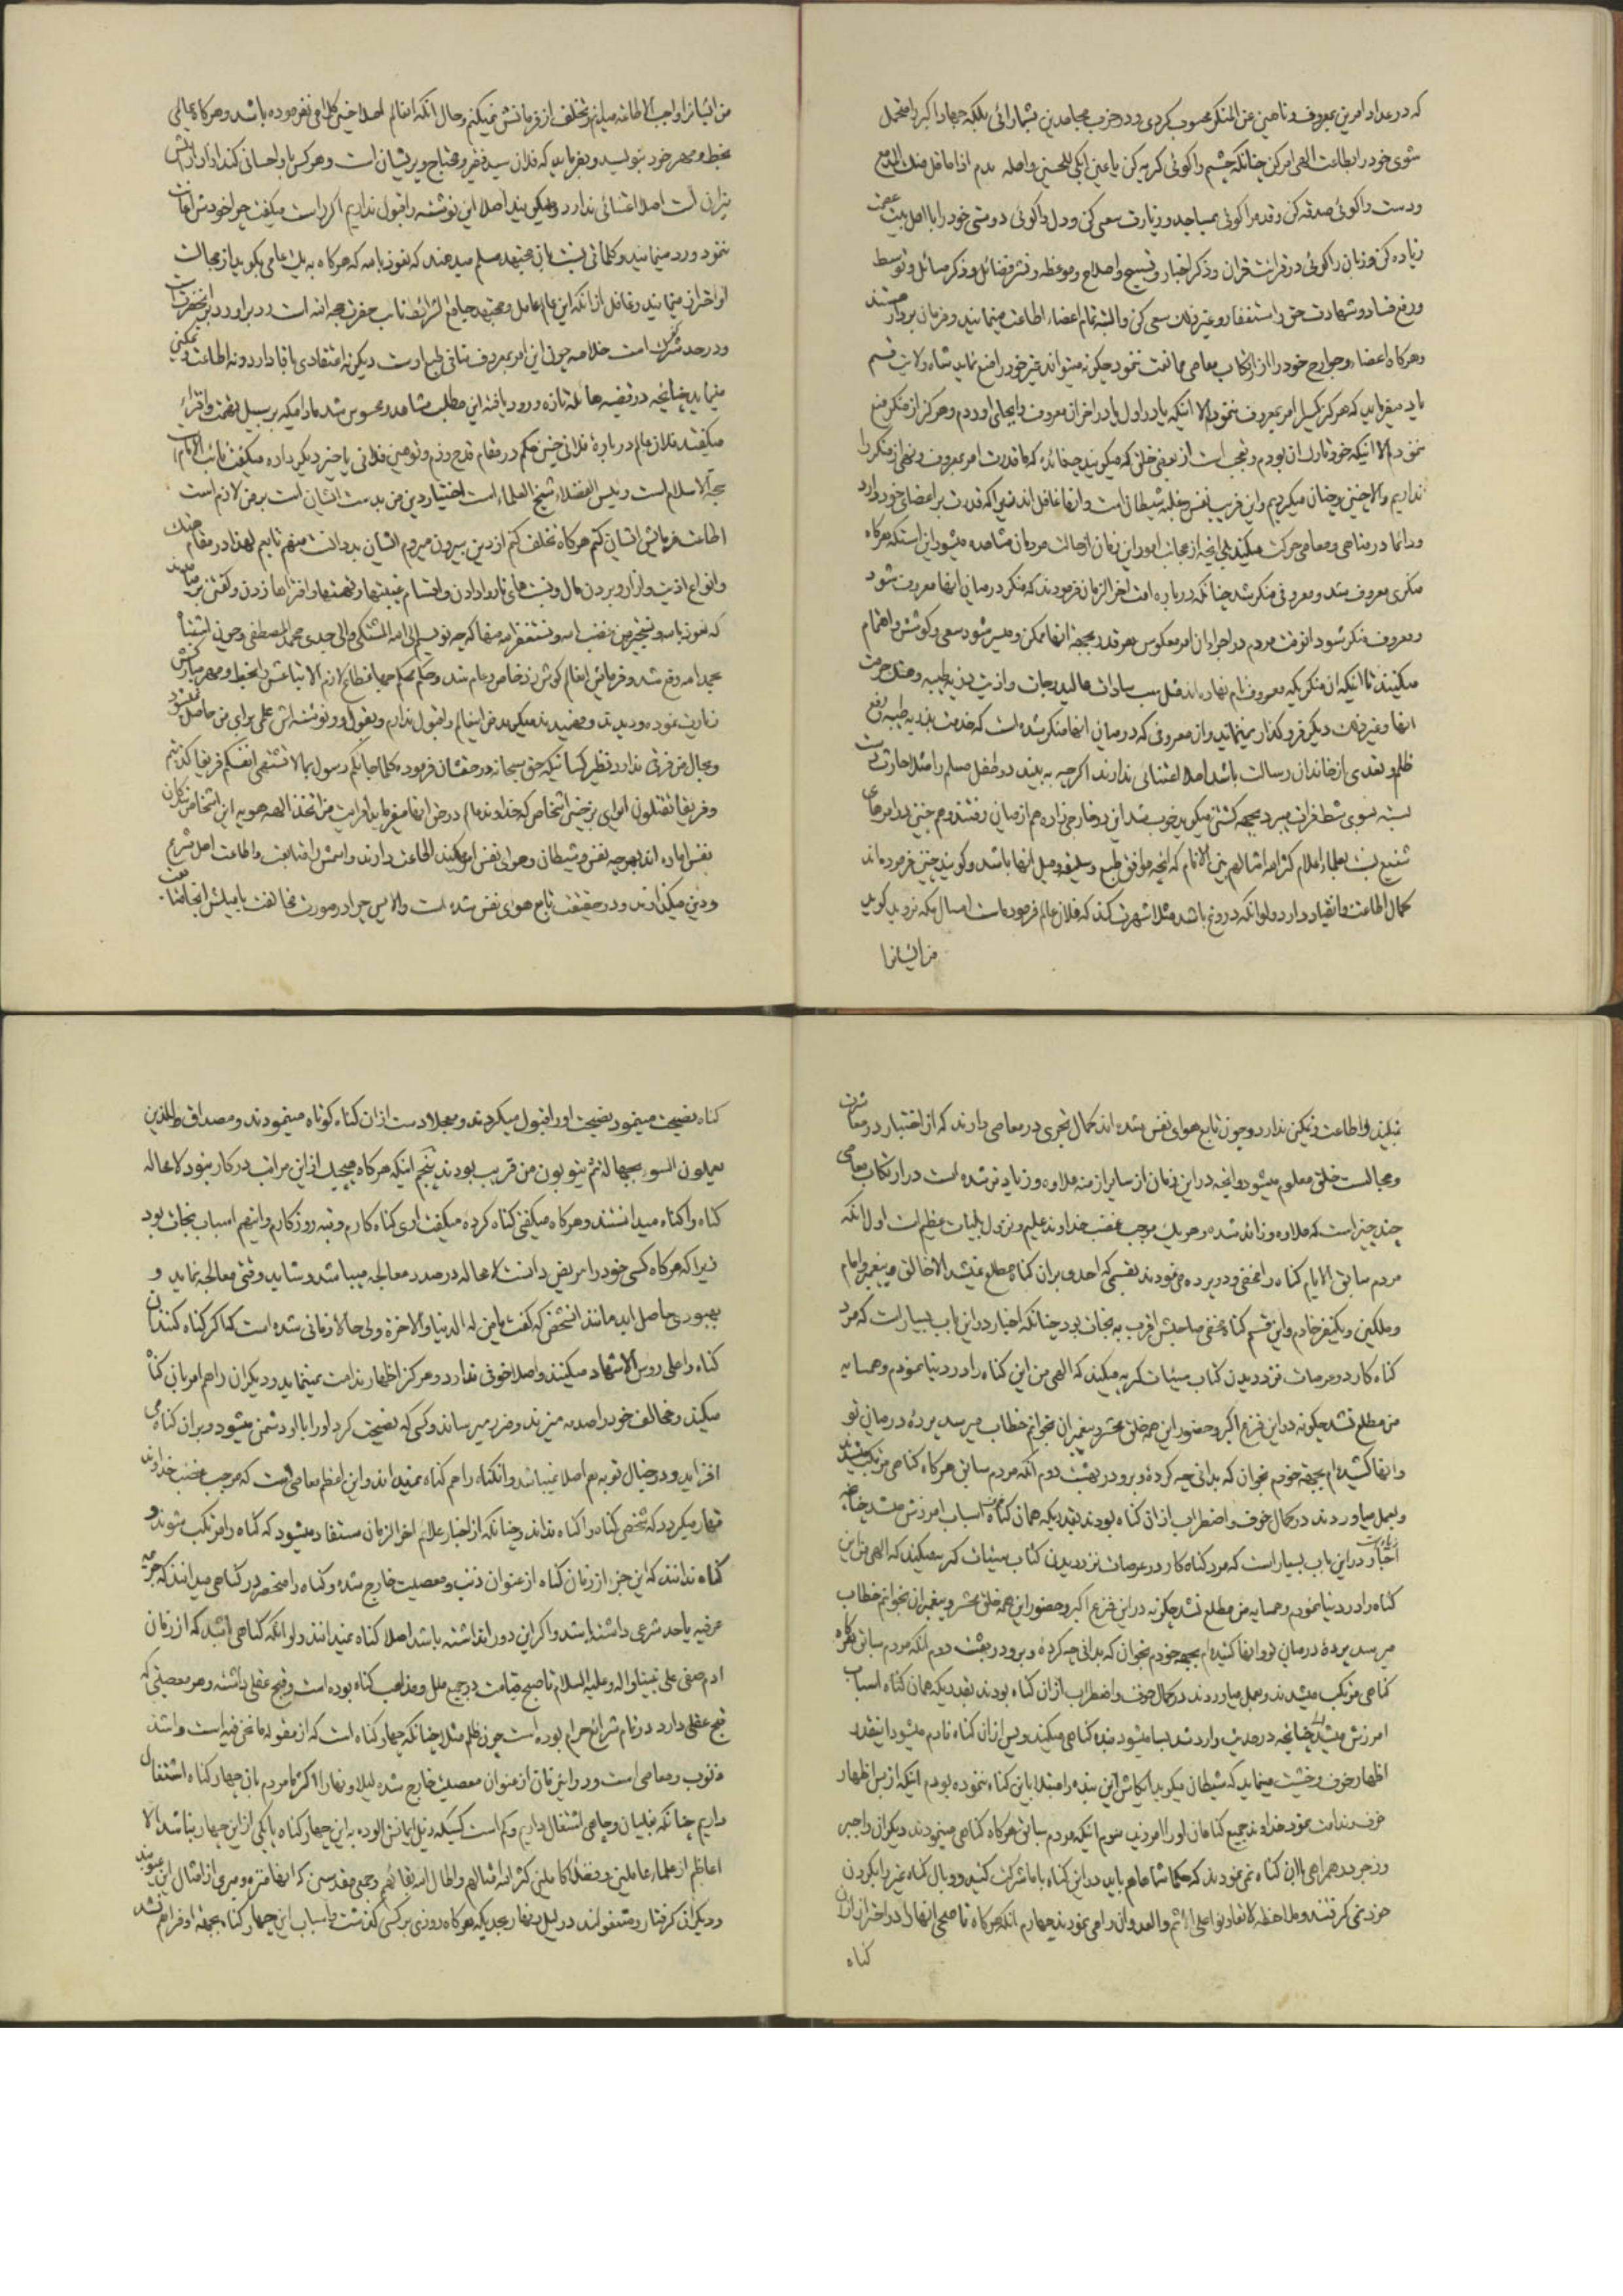 که در عداد امرین بمعروف و ناهین عن المنکر محسوب کردی و در حزب مجاهدین بشمار ائی بلکه جهاد اکبر را متحمل
شوی خود را بطاعت الهی امر کن چنانکه چشم را کوئی کریه کن یا عین ابکی للحسین
و دست را کوئی صدقه کن و قدم را کوئی بمساجد و زیارت سعی کن و دل را کوئی دوستی خود را با اهل بیت عصمت
زیاده کن و زبان را کوئی در قرائت قران و ذکر اخبار و تسبیح و اصلاح و موعظه و نشر فضائل و ذکر مسائل و توسط
و رفع فساد و شهادت حق و استغفار و غیر ذلک سعی کن و البته تمام اعضاء اطاعت مینمایند و فرمان بردار هستند
و هرکاه اعضاء و جوارح خود را از ارتکاب معاصی ممانعت ننمود چکونه میتواند غیر خود را منع نماید شاه ولایت قسم
یاد میفرماید که هرکز یکبار امر بمعروف ننمودم الا اینکه یا در اول یا در اخر ان معروف را بجای اوردم و هرکز از منکر منع
ننمودم الا اینکه خود تارک ان بودم و عجب است از بعضی خلق که میکویند چه فائده که ما قدرت امر بمعروف و نهی از منکر را
نداریم والا چنین و چنان میکردیم و این فریب نفس و غلبه شیطان است و انها غافل اند زیرا که قدرت بر اعضای خود دارد
و دائما در مناهی و معاصی حرکت میکند بلی انچه از عجائب امور این زمان از حالت مردمان مشاهده میشود این استکه هرکاه
منکری معروف شد و معروفی منکر شد چنانکه در باره امت اخر الزمان فرمودند که منکر در میان انها معروف شود
و معروف منکر شود انوقت مردم در اجراء ان امر معکوس هر قدر بجهة انها ممکن و میسر شود سعی و کوشش و اهتمام
میکنند تا اینکه ان منکر یکه معروف نام نهاده اند مثل سب سادات عالیدرجات و اذیت ذریه طیبه و هتک حرمت
انها و غیر ذلک دیکر فروکذار نمینمایند و ان معروفی که در میان انها منکر شده است که خدمت بذریه طیبه و رفع
ظلم و تعدی از خاندان رسالت باشد اصلا اعتنائی ندارند اکرچه به بینند دو طفل مسلم را مثلا حارث دست
بسته بسوی شط فرات میبرد بجهة کشتن میکویند خوب شد این دو خارجی زاده هم از میان رفتند و هم چنین در امرهای
شنیع نسبت بعلماء اعلام کثر الله امثالهم بین الانام که انچه موافق طبع و سلیقه و میل انها باشد و کویند چنین فرموده اند
کمال اطاعت و انقیاد دارد ولو انکه دروغ باشد مثلا شهرت کند که فلان عالم فرموده است امسال مکه نروید کوید
من ایشانرا
من ایشانرا واجب الاطاعه میدانم و تخلف از فرمانش نمیکنم و حال انکه انعالم اصلا چنین کلامی نفرموده باشد و هرکاه عالمی
بخط و مهر خود بنویسد و بفرماید که فلان سید فقیر و محتاج و پریشان است و هرکس باو احسانی کند
اصلا اعتنائی ندارد و میکوید اصلا این نوشته را قبول ندارم اکر راست میکفت چرا خودش اعانت
ننمود و رد مینمایند و کلماتی نسبت بان مجتهد مسلم میدهند که نعوذ بالله که هرکاه به یک عامی بکوید از مجالست
او احتراز مینمایند و غافل از انکه این عالم عامل و مجتهد جامع الشرائط نائب حضرت حجة الله است رد بر او رد بر انحضرت است
و در حد شرک است خلاصه چون این امر بمعروف منافی طبع اوست دیکر نه اعتقادی باقا دارد و نه اطاعت و تمکین
مینماید چنانچه در قضیه هائله تازه ورود یافته این مطلب مشاهد و محسوس شد مادامیکه بر سبیل تهمت و افتراء
میکفتند فلان عالم در باره فلانی چنین حکم در مقام قدح و ذم و توهین فلانی یا چیز دیکر داده میکفت نائب الامام
حجة الاسلام است و رئیس الفضلاء شیخ العلماء است اختیار دین من بدست ایشان است بر من لازم است
اطاعت فرمایش ایشان کنم هرکاه تخلف کنم از دین بیرون میروم ایشان بد دانست منهم تابعم لهذا در مقام هتک
و انواع اذیت و ازار و بردن مال و نسبت های ناروا دادن و اقسام غیبتها و تهمتها و افتراها زدن و کفتن بر میامدند
که نعوذ بالله و نستجیر من غضب الله و نستغفر الله منها که چه نویسم الی الله المشتکی و الی جدی محمد المصطفی و چون استثناء
بحمد الله رفع شد و فرمایش انعالم کوش زد خاص و عام شد و حکم محکم جهانمطاع لازم الاتباعش را بخط و مهر مبارکش
زیارت نموده و دیدند و فهمیدند میکویند من اینعالم را قبول ندارم و بقول و نوشته اش علمی برای من حاصل نمیشود
و بحال من فرقی ندارد نظیر کسانیکه حق سبحانه در حقشان فرموده کلما جائکم رسول بما لا تهوی انفسکم ففریقا کذبتم
و فریقا تقتلون ای وای بر چنین اشخاص که خداوند عالم در حق انها میفرماید افرایت من اتخذ الهه هویه این اشخاص بندکان
نفس اماره اند بهرچه نفس و شیطان و هوای نفس امر میکند اطاعت دارند و اسمش را متابعت و اطاعت اهل شرع
و دین میکذارند و در حقیقت تابع هوای نفس شده است والا پس چرا در صورت مخالفت با میلش
نمیکند و اطاعت و تمکین ندارد و چون تابع هوای نفس شده اند کمال تجری در معاصی دارند که از اختبار در معاشرت
و مجالست خلق معلوم میشود و انچه در این زمان از سایر ازمنه علاوه و زیادتر شده است در ارتکاب معاصی
چند چیز است که علاوه و زائد شده و هر یک موجب غضب خداوند علیم و نزول بلیات عظیم است اول انکه
مردم سابق الایام کناه را مخفی و در پرده می نمودند بقسمی که احدی بر ان کناه مطلع نمیشد الا خالق و پیغمبر و امام
و ملکین و یکنفر خادم و این قسم کناه مخفی صاحبش اقرب به نجات بود چنانکه اخبار در این باب بسیار است که مرد
کناه کار در عرصات نزد دیدن کتاب سیئات کریه میکند که الهی من این کناه را در دنیا نمودم و همسایه
من مطلع نشد چکونه در این فزع اکبر و حضور این همه خلق محشر و پیغمبران بخوانم خطاب میرسد پرده در میان تو
و انها کشیده ام بجهة خودم بخوان که بدانی چه کرده و برو در بهشت دوم انکه مردم سابق هرکاه کناهی مرتکب میشدند
و بعمل میاوردند در کمال خوف و اضطراب از ان کناه بودند بقدریکه همان کناه اسباب امرزش میشد چنانچه
اخبار در این باب بسیار است که مرد کناه کار در عرصات نزد دیدن کتاب سیئات کریه میکند که الهی من این
کناه را در دنیا نمودم و همسایه من مطلع نشد چکونه در این فزع اکبر و حضور این همه خلق محشر و پیغمبران بخوانم خطاب
میرسد پرده در میان تو و انها کشیده ام بجهة خودم بخوان که بدانی چه کرده و برو در بهشت دوم انکه مردم سابق هرکاه
کناهی مرتکب میشدند و بعمل میاوردند در کمال خوف و اضطراب از ان کناه بودند بقدریکه همان کناه اسباب
امرزش میشد چنانچه در حدیث وارد شد بسا میشود بنده کناهی میکند و پس از ان کناه نادم میشود انقدر
اظهار خوف و خشیت مینماید که شیطان میکوید ایکاش این بنده را مبتلا باین کناه ننموده بودم اینکه از بس اظهار
خوف و ندامت نمود خداوند جمیع کناهان او را امرزید سوم انکه مردم سابق هرکاه کناهی مینمودند دیکران را جبر
و زجر در همراهی با ان کناه نمی نمودند که حکما شماها هم باید در این کناه با ما شرکت کنید و وبال کناه غیر را بکردن
خود نمی کرفتند و ملاحظه لا تعاونوا علی الاثم و العدوان را می نمودند چهارم انکه هرکاه ناصحی انها را در احتراز از ان
کناه
کناه نصیحت مینمود نصیحت او را قبول میکردند و معجلا دست از ان کناه کوتاه مینمودند و مصداق و الذین
یعملون السوء بجهالة ثم یتوبون من قریب بودند پنجم اینکه هرکاه هیچیک از این مراتب در کار نبود لا محاله
کناه را کناه میدانستند و هرکاه میکفتی کناه کرده میکفت اری کناه کارم و تبه روزکارم و اینهم اسباب نجات بود
زیرا که هرکاه کسی خود را مریض دانست لا محاله در صدد معالجه میباشد و شاید وقتی معالجه نماید و
بهبودی حاصل اید مانند انشخص که کفت یا من له الدنیا و الاخرة ولی حالا زمانی شده است که اکر کناه کنند ان
کناه را علی رؤس الاشهاد میکنند و اصلا خوفی ندارد و هرکز اظهار ندامت نمینماید و دیکران را هم امر بان کناه
میکند و مخالف خود را صدمه میزند و ضرر میرساند و کسی که نصیحت کرد او را با او دشمن میشود و بر ان کناه می
افزاید و در خیال توبه هم اصلا نمیباشد و انکناه را هم کناه نمیداند و این اعظم معاصی است که موجب غضب خداوند
قهار میکردد که شخصی کناه را کناه نداند و چنانکه از اخبار علائم اخر الزمان مستفاد میشود که کناه را مرتکب شوند و
کناه ندانند که این جزء از زمان کناه از عنوان ذنب و معصیت خارج شده و کناه را منحصر در کناهی میدانند که جریمه
عرفیه یا حد شرعی داشته باشد و اکر این دو را نداشته باشد اصلا کناه نمیدانند ولو انکه کناهی باشد که از زمان
ادم صفی علی نبینا و اله و علیه السلام تا صبح قیامت در جمیع ملل و مذاهب کناه بوده است و قبح عقلی داشته و هر معصیتی که
قبح عقلی دارد در تمام شرائع حرام بوده است چون ظلم مثلا چنانکه چهار کناه است که از مقوله ما نحن فیه است و اشد
ذنوب و معاصی است و در این زمان از عنوان معصیت خارج شده لیلا و نهارا اکثر ما مردم بان چهار کناه اشتغال
داریم چنانکه بقلیان و چاهی اشتغال داریم و کم است کسیکه ذیل ایمانش الوده به این چهار کناه یا یکی از این چهار نباشد الا
اعاظم از علماء عاملین و فضلاء کاملین کثر الله امثالهم و اطال الله بقائهم و جمعی مقدسین که انها منزه و مبری از امثال این عیوبند
و دیکران کرفتار و مشغولند در لیل و نهار بحدیکه هرکاه روزی بر کسی کذشت و اسباب این چهار کناه بجهة او فراهم نشد